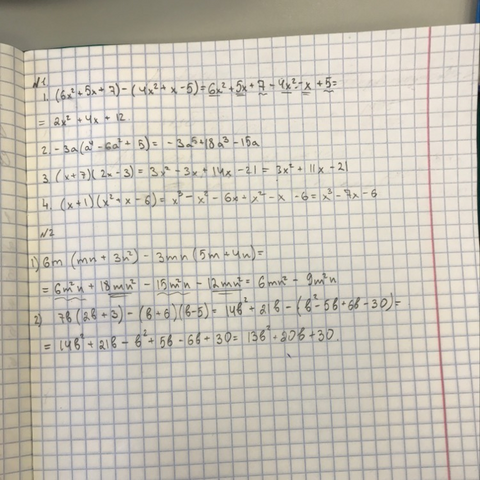 N1
1. (6x² + 5x + 7) - (4x² + x - 5) = 6x² + 5x + 7 - 4x² - x + 5 =
= 2x² + 4x + 12
2. -3a(a⁴ - 6a² + 5) = -3a⁵ + 18a³ - 15a
3. (x + 7)(2x - 3) = 3x² - 3x + 14x - 21 = 3x² + 11x - 21
4. (x + 1)(x² + x - 6) = x³ - x² - 6x + x² - x - 6 = x³ - 7x - 6
N2
1) 6m (mn + 3n²) - 3mn (5m + 4n) =
= 6m²n + 18mn² - 15m²n - 12mn² = 6mn² - 9m²n
2) 7b(2b + 3) - (b + 6)(b - 5) = 14b² + 21b - (b² - 5b + 6b - 30) =
= 14b² + 21b - b² + 5b - 6b + 30 = 13b² + 20b + 30.